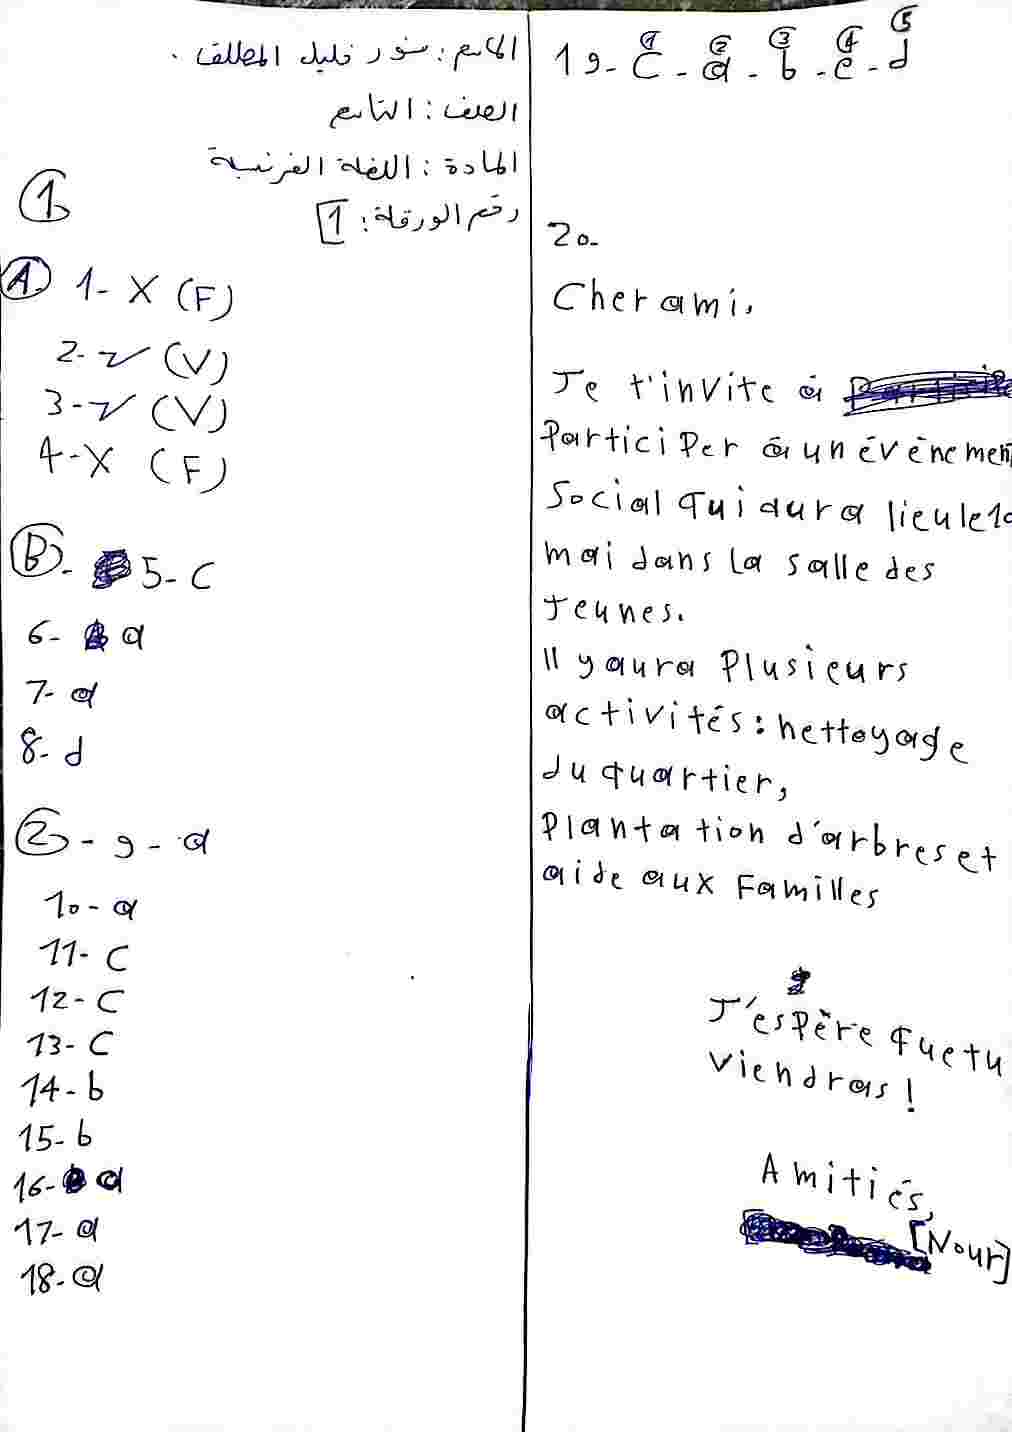 الاسم: نور خليل المطلق.
الصف: التاسع
المادة: اللغة الفرنسية
رقم الورقة: 1
1
A. 1- X (F)
2- ✓ (V)
3- ✓ (V)
4- X (F)
B.- 5- C
6- a
7- a
8- d
2 - 9 - a
10- a
11- C
12- C
13- C
14- b
15- b
16- a
17- a
18- a
1 2 3 4 5
19- C - a - b - e - d
20-
Cher ami,
Je t'invite à
Participer à un évènemen
Social qui aura lieu le 10
mai dans la salle des
Jeunes.
Il y aura Plusieurs
activités: nettoyage
du quartier,
Plantation d'arbres et
aide aux Familles
J'espère que tu
viendras!
Amitiés,
[Nour]